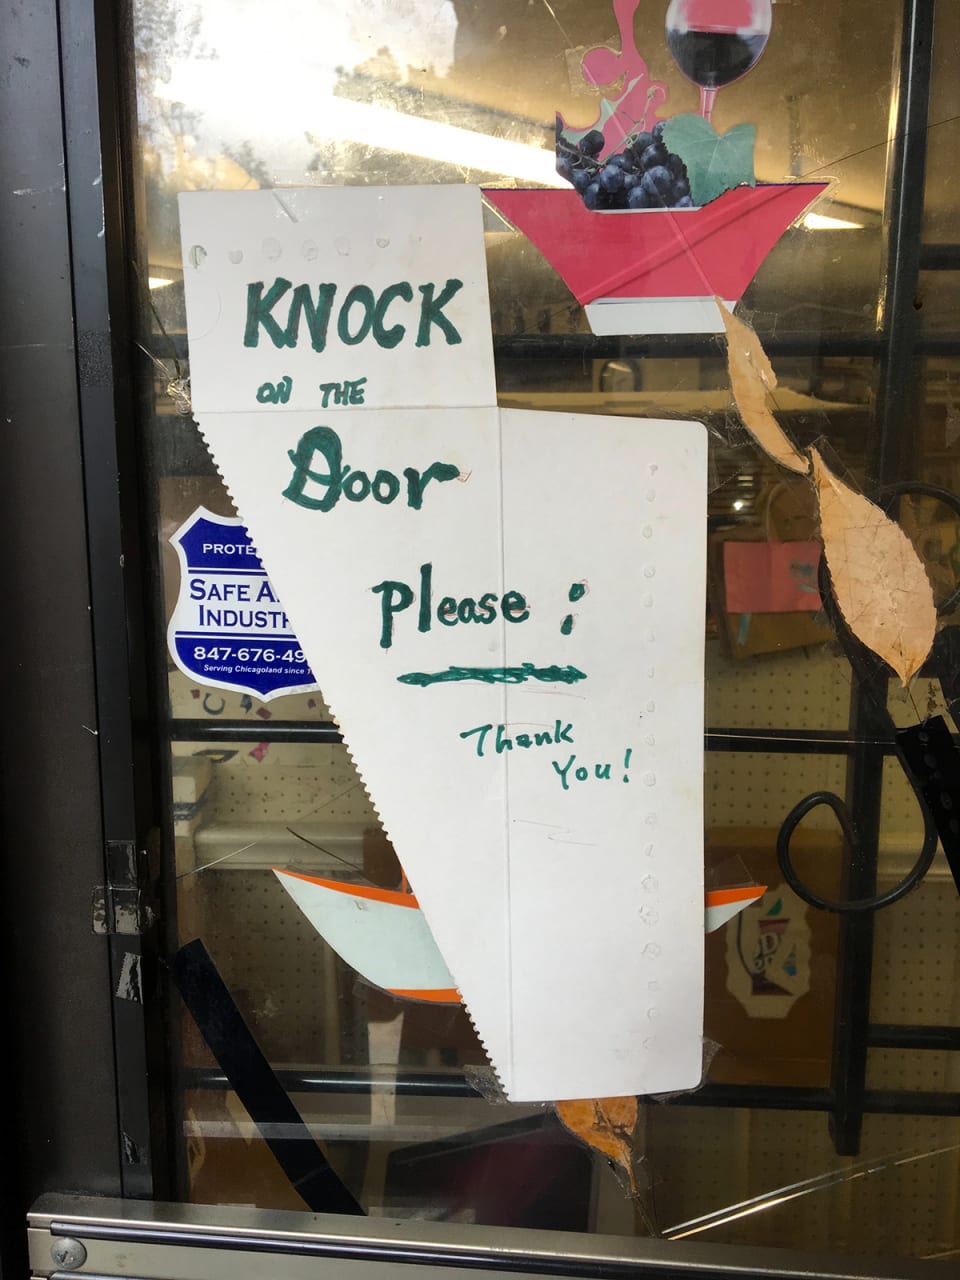 KNOCK
ON THE
Door
Please :
Thank
You!
PROTE
SAFE A
INDUSTR
847-676-49
Serving Chicagoland since 1